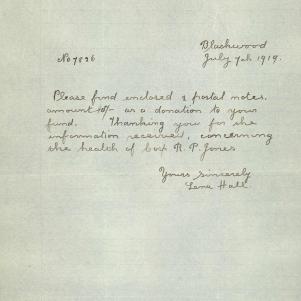 Blackwood
No 7826
July 7th 1919.
Please find enclosed 2 postal notes,
amount 10/- as a donation to your
fund. Thanking you for the
information received, concerning
the health of Corp R. P. Jones
Yours sincerely
Lena Hall.